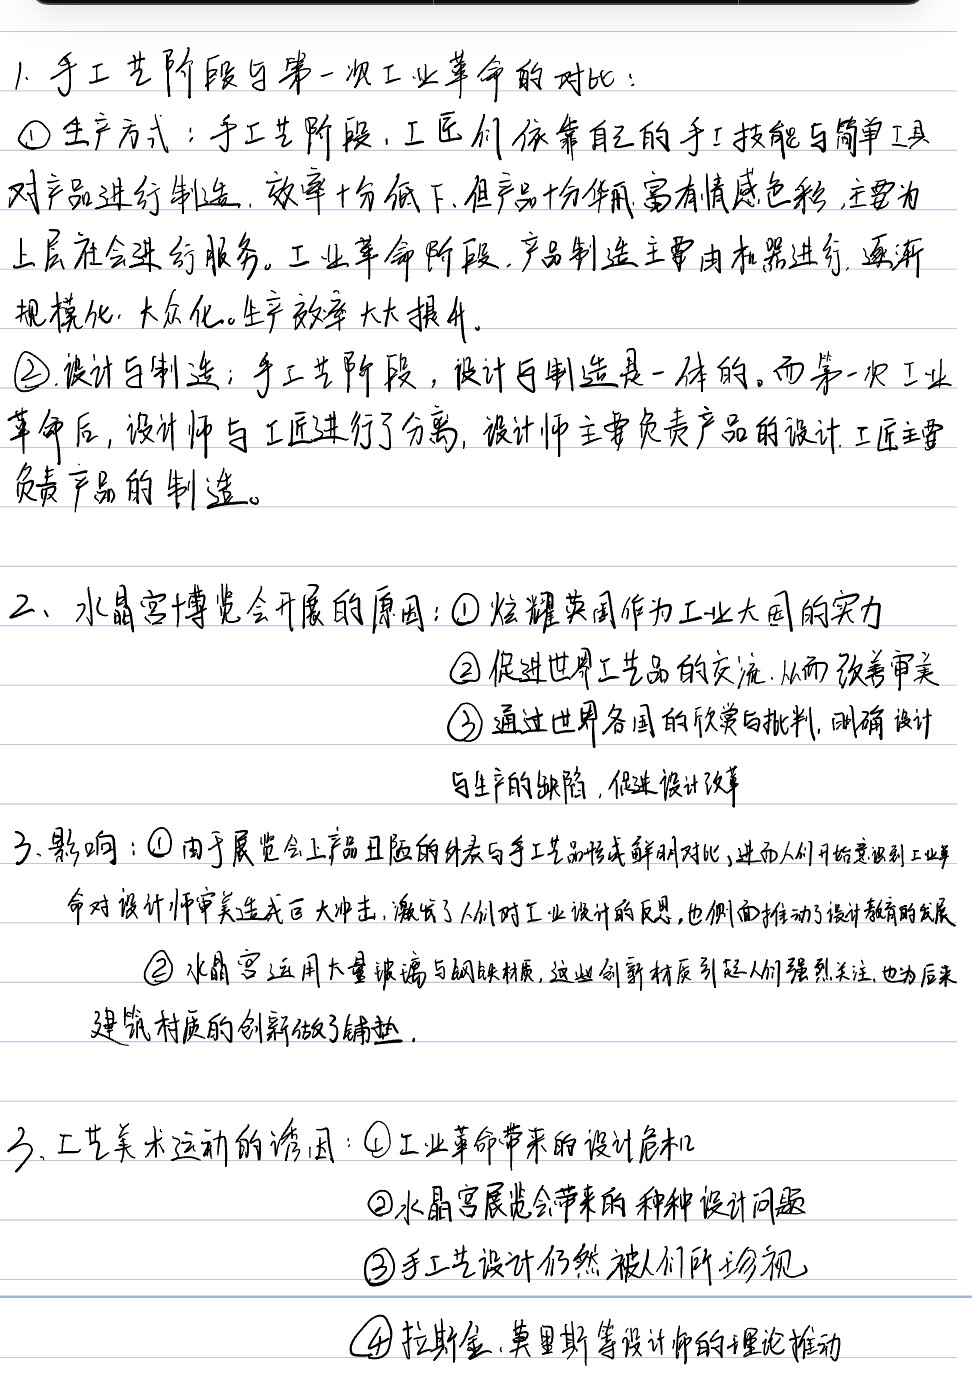 1. 手工艺阶段与第一次工业革命的对比：
① 生产方式：手工艺阶段，工匠们依靠自己的手工技能与简单工具
对产品进行制造，效率十分低下，但产品十分华丽，富有情感色彩，主要为
上层社会进行服务。工业革命阶段，产品制造主要由机器进行，逐渐
规模化，大众化。生产效率大大提升。
②.设计与制造；手工艺阶段，设计与制造是一体的。而第一次工业
革命后，设计师与工匠进行了分离，设计师主要负责产品的设计，工匠主要
负责产品的制造。
2、水晶宫博览会开展的原因：① 炫耀英国作为工业大国的实力
② 促进世界工艺品的交流，从而改善审美
③ 通过世界各国的欣赏与批判，明确设计
与生产的缺陷，促进设计改革
3.影响：① 由于展览会上产品丑陋的外表与手工艺品形成鲜明对比，进而人们开始意识到工业革
命对设计师审美造成巨大冲击，激发了人们对工业设计的反思，也侧面推动了设计教育的发展
② 水晶宫运用大量玻璃与钢铁材质，这些创新材质引起人们强烈关注，也为后来
建筑材质的创新做了铺垫.
3、工艺美术运动的诱因：①工业革命带来的设计危机
②水晶宫展览会带来的种种设计问题
③手工艺设计仍然被人们所珍视
④拉斯金、莫里斯等设计师的理论推动